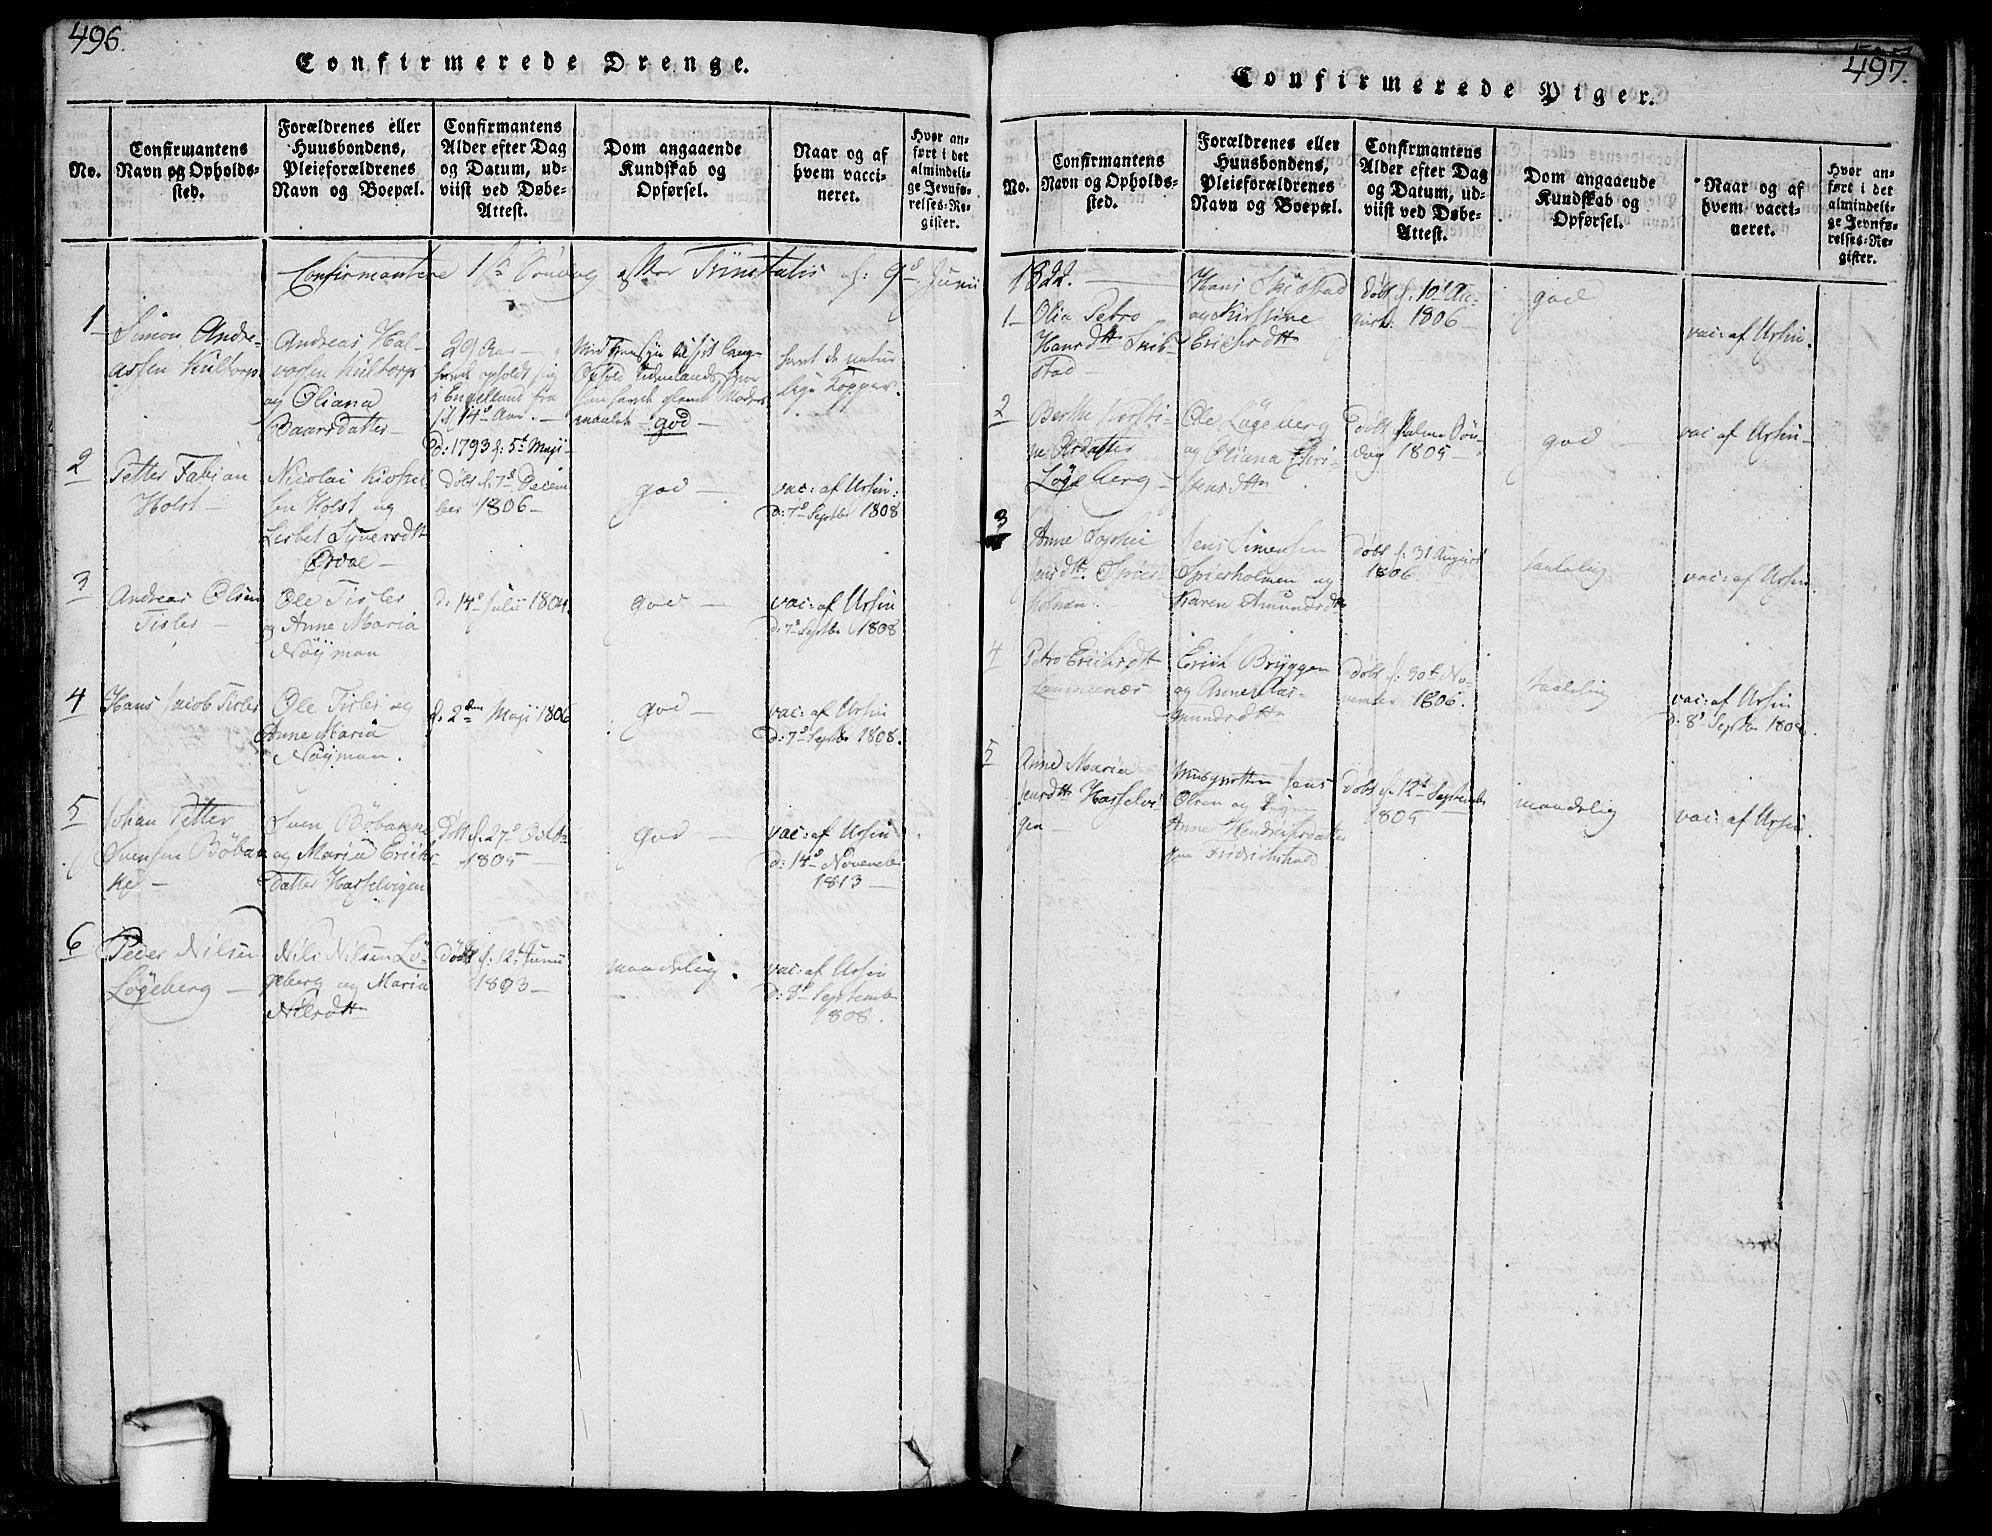 496.
Confirmerede Drenge.
No.
Confirmantens
Navn og Opholds-
sted.
Forældrenes eller
Huusbondens,
Pleieforældrenes
Navn og Boepæl.
Confirmantens
Alder efter Dag
og Datum, ud-
viist ved Døbe-
Attest.
Dom angaaende
Kundskab og
Opførsel.
Naar og af
hvem vacci-
neret.
Hvor an-
ført i det
almindeli-
ge Jevnfø-
relses-Re-
gister.
Confirmantere 1ste Søndag efter Trinitatis d: 9d Junii
1
Simon Andre-
assen Kultorp
Andreas Hal-
vorsen Kultorp
og Oliana
Baarsdatter
29 Aar
havt opholdt sig
i Engelland fra
sit 14d Aar.
D: 1793 d: 5t Maji
Med Hensyn til sit lange
Ophold Udenlands, hvor
han havde glemt Moders
maalet god
havt de natur
lige Kopper
2
Petter Fabian
Holst
Nicolai
sen Holst og
Lisbet Syversdtt
Ørdal
Døbt d. 7d Decem
ber 1806
god
vac: af Ursin:
D: 7d Septbr 1808
3
Andreas Olsen
Tisler
Ole Tisler
og Anne Maria
Nøyman
d. 14d Julii 1804
god
vac: af Ursin
D: 7d Septbr 1808
4
Hans Jacob Tisler
Ole Tisler og
Anne Maria
Nøyman.
d. 2den Maji 1806
god
vac: af Ursin
D: 7d Septbr 1808.
5
Johan Petter
Svensen Bøbak
ke
Sven Bøbakke
og Maria Erichs
datter Hasselvigen
Døbt d. 27d Octob
1805
god
vac: af Ursin
D: 14d Novembr
1813
6
Peder Nilsen
Løgeberg
Nils Nilsen Lø-
geberg og Maria
Nilsdtt
Døbt d. 12t Junii
1803
maadelig.
vac: af Ursin
D: 8d Septembr
1808.
497.
Confirmerede Piger.
No.
Confirmantens
Navn og Opholds-
sted.
Forældrenes eller
Huusbondens,
Pleieforældrenes
Navn og Boepæl.
Confirmantens
Alder efter Dag
og Datum, ud-
viist ved Døbe-
Attest.
Dom angaaende
Kundskab og
Opførsel.
Naar og af
hvem vacci-
neret.
Hvor an-
ført i det
almindeli-
ge Jevnfø-
relses-Re-
gister.
1822.
1
Olia Petro
Hansdtt Skib-
stad
Hans Skibstad
og Kirstine
Erichsdtt
Døbt d. 10d Au-
gust: 1806
god
vac: af Ursin.
2
Berthe Kirsti-
ne Olsdatter
Løgeberg
Ole Løgeberg
og Oliana Chri-
stensdttr
Døbt Palme Søn-
dag 1805
god
vac: af Ursin
3
Anne Sophie
Jensdtt. Spier-
holmen.
Jens Simensen
Spierholmen og
Karen Amundsdtt
Døbt d: 31 August
1806
taalelig
vac: af Ursin
4
Petro Erichsdtt
Erich Bryggen
og Anne Aas-
mundsdttr
Døbt d. 30t No-
vember 1806.
taalelig
vac: af Ursin
D: 8d Septbr
5
Anne Maria
Jensdtt Hasselvi
gen
Jens
Olsen og Pigen
Anne Hendrichsdatter
Fridrichshald
Døbt d. 12t Septembr
1805
maadelig
vac: af Ursin.